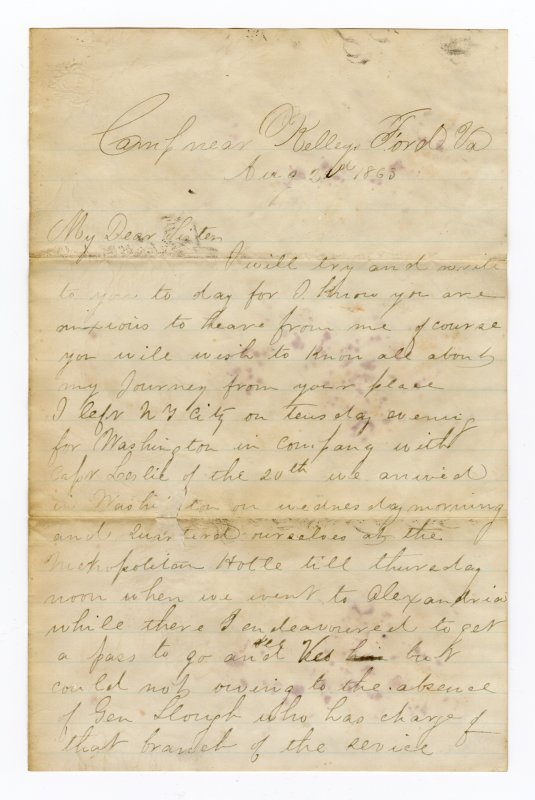 Camp near Kellys Ford Va
Aug 2nd 1863
My Dear Sister
I will try and write
to you to day for I know you are
anxious to heare from me of course
you will wish to know all about
my Journey from your place
I left NY City on teusday evening
for Washington in company with
Capt Leslie of the 20th we arrived
in Washington on wednesday morning
and quartered ourselves at the
Metropolitan Hotle till thursday
noon when we went to Alexandria
while there I endeavoured to get
a pass to go and see but
could not owing to the absence
of Gen Slough who has charge of
that branch of the service